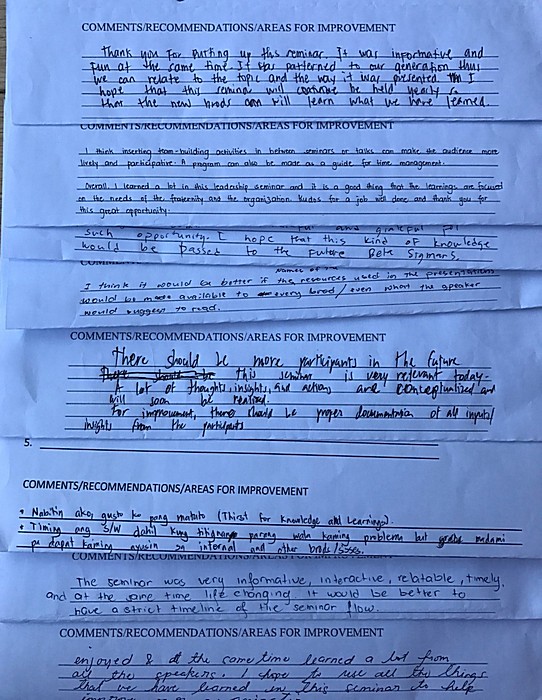 COMMENTS/RECOMMENDATIONS/AREAS FOR IMPROVEMENT
Thank you for putting up this seminar. It was informative and
fun at the same time. It was patterned to our generation thus
we can relate to the topic and the way it was presented. I
hope that this seminar will continue be held yearly so
that the new brods can will learn what we have learned.
COMMENTS/RECOMMENDATIONS/AREAS FOR IMPROVEMENT
I think inserting team-building activities in between seminars or talks can make the audience more
lively and participative. A program can also be made as a guide for time management.
Overall, I learned a lot in this leadership seminar and it is a good thing that the learnings are focused
on the needs of the fraternity and the organization. Kudos for a job well done and thank you for
this great opportunity.
and grateful for
such opportunity. I hope that this kind of knowledge
would be passed to the future Beta Sigmans.
names of the
I think it would be better if the resources used in the presentation
would be made available to every brod/even what the speaker
would suggest to read.
COMMENTS/RECOMMENDATIONS/AREAS FOR IMPROVEMENT
there should be more participants in the future
There should be this seminar is very relevant today.
A lot of thoughts, insights, and actions are conceptualized and
will soon be realized.
For improvement, there should be proper documentation of all inputs/
insights from the participants
5.
COMMENTS/RECOMMENDATIONS/AREAS FOR IMPROVEMENT
• Nabitin ako, gusto ko pang matuto (Thirst for knowledge and Learnings).
• Timing ang S/W dahil kung titignan parang wala kaming problema but grabe madami
pa dapat kaming ayusin sa internal and other brods/sisses.
COMMENTS/RECOMMENDATIONS/AREAS FOR IMPROVEMENT
The seminar was very informative, interactive, relatable, timely,
and at the same time life changing. It would be better to
have a strict timeline of the seminar flow.
COMMENTS/RECOMMENDATIONS/AREAS FOR IMPROVEMENT
enjoyed & at the same time learned a lot from
all the speakers. I hope to use all the things
that we have learned in this seminar to help